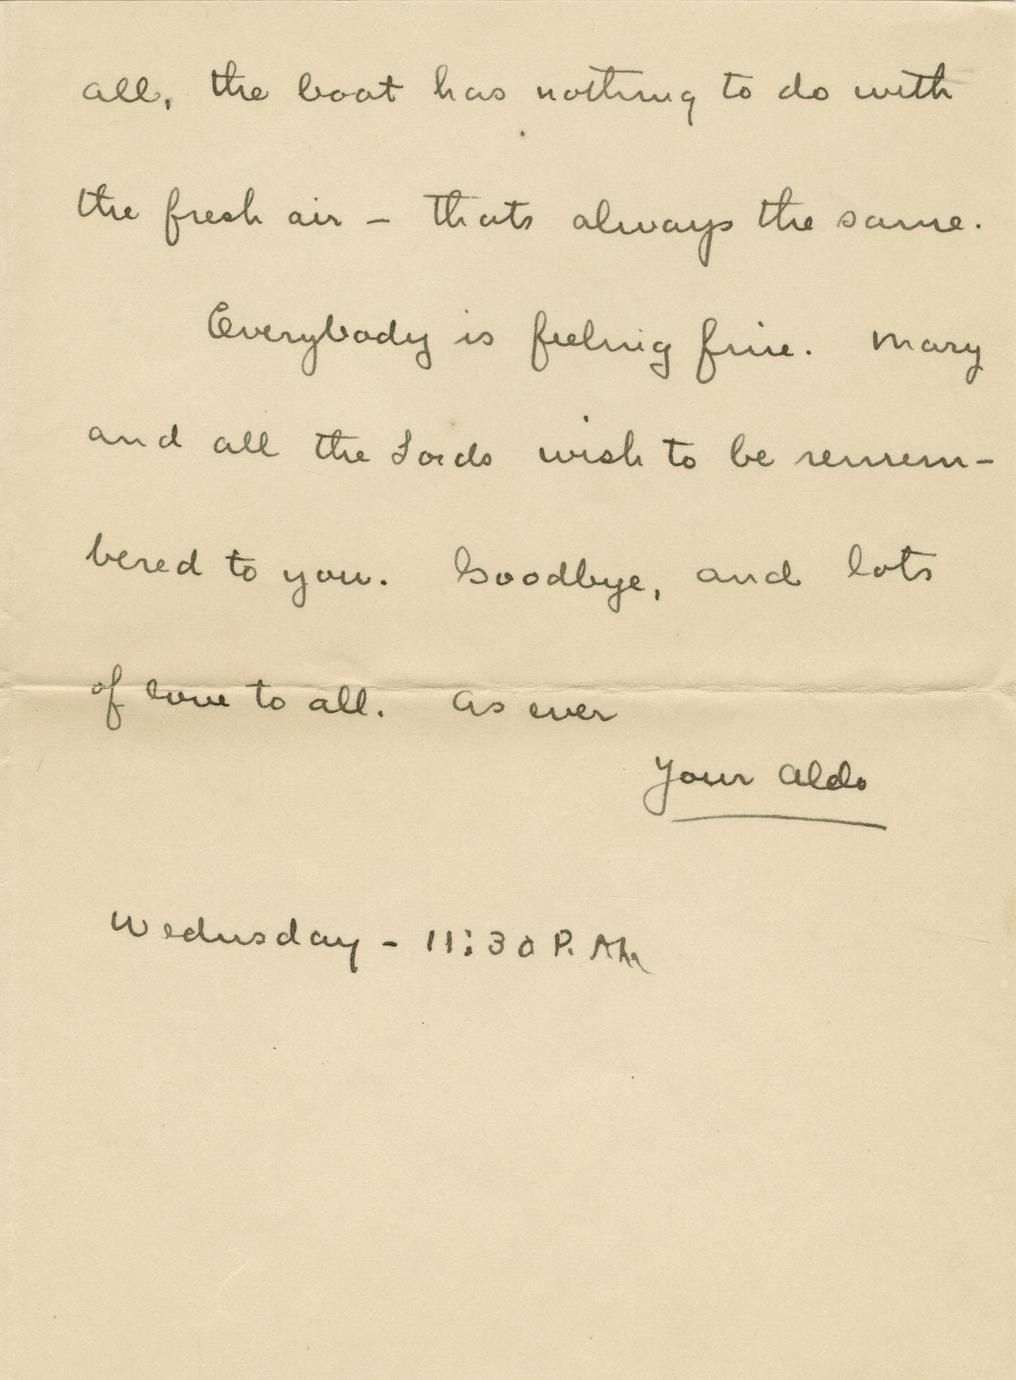 all, the boat has nothing to do with
the fresh air – thats always the same.
Everybody is feeling fine. Mary
and all the Lords wish to be remem-
bered to you. Goodbye, and lots
of love to all. As ever
Your Aldo
Wednesday - 11:30 P.M.